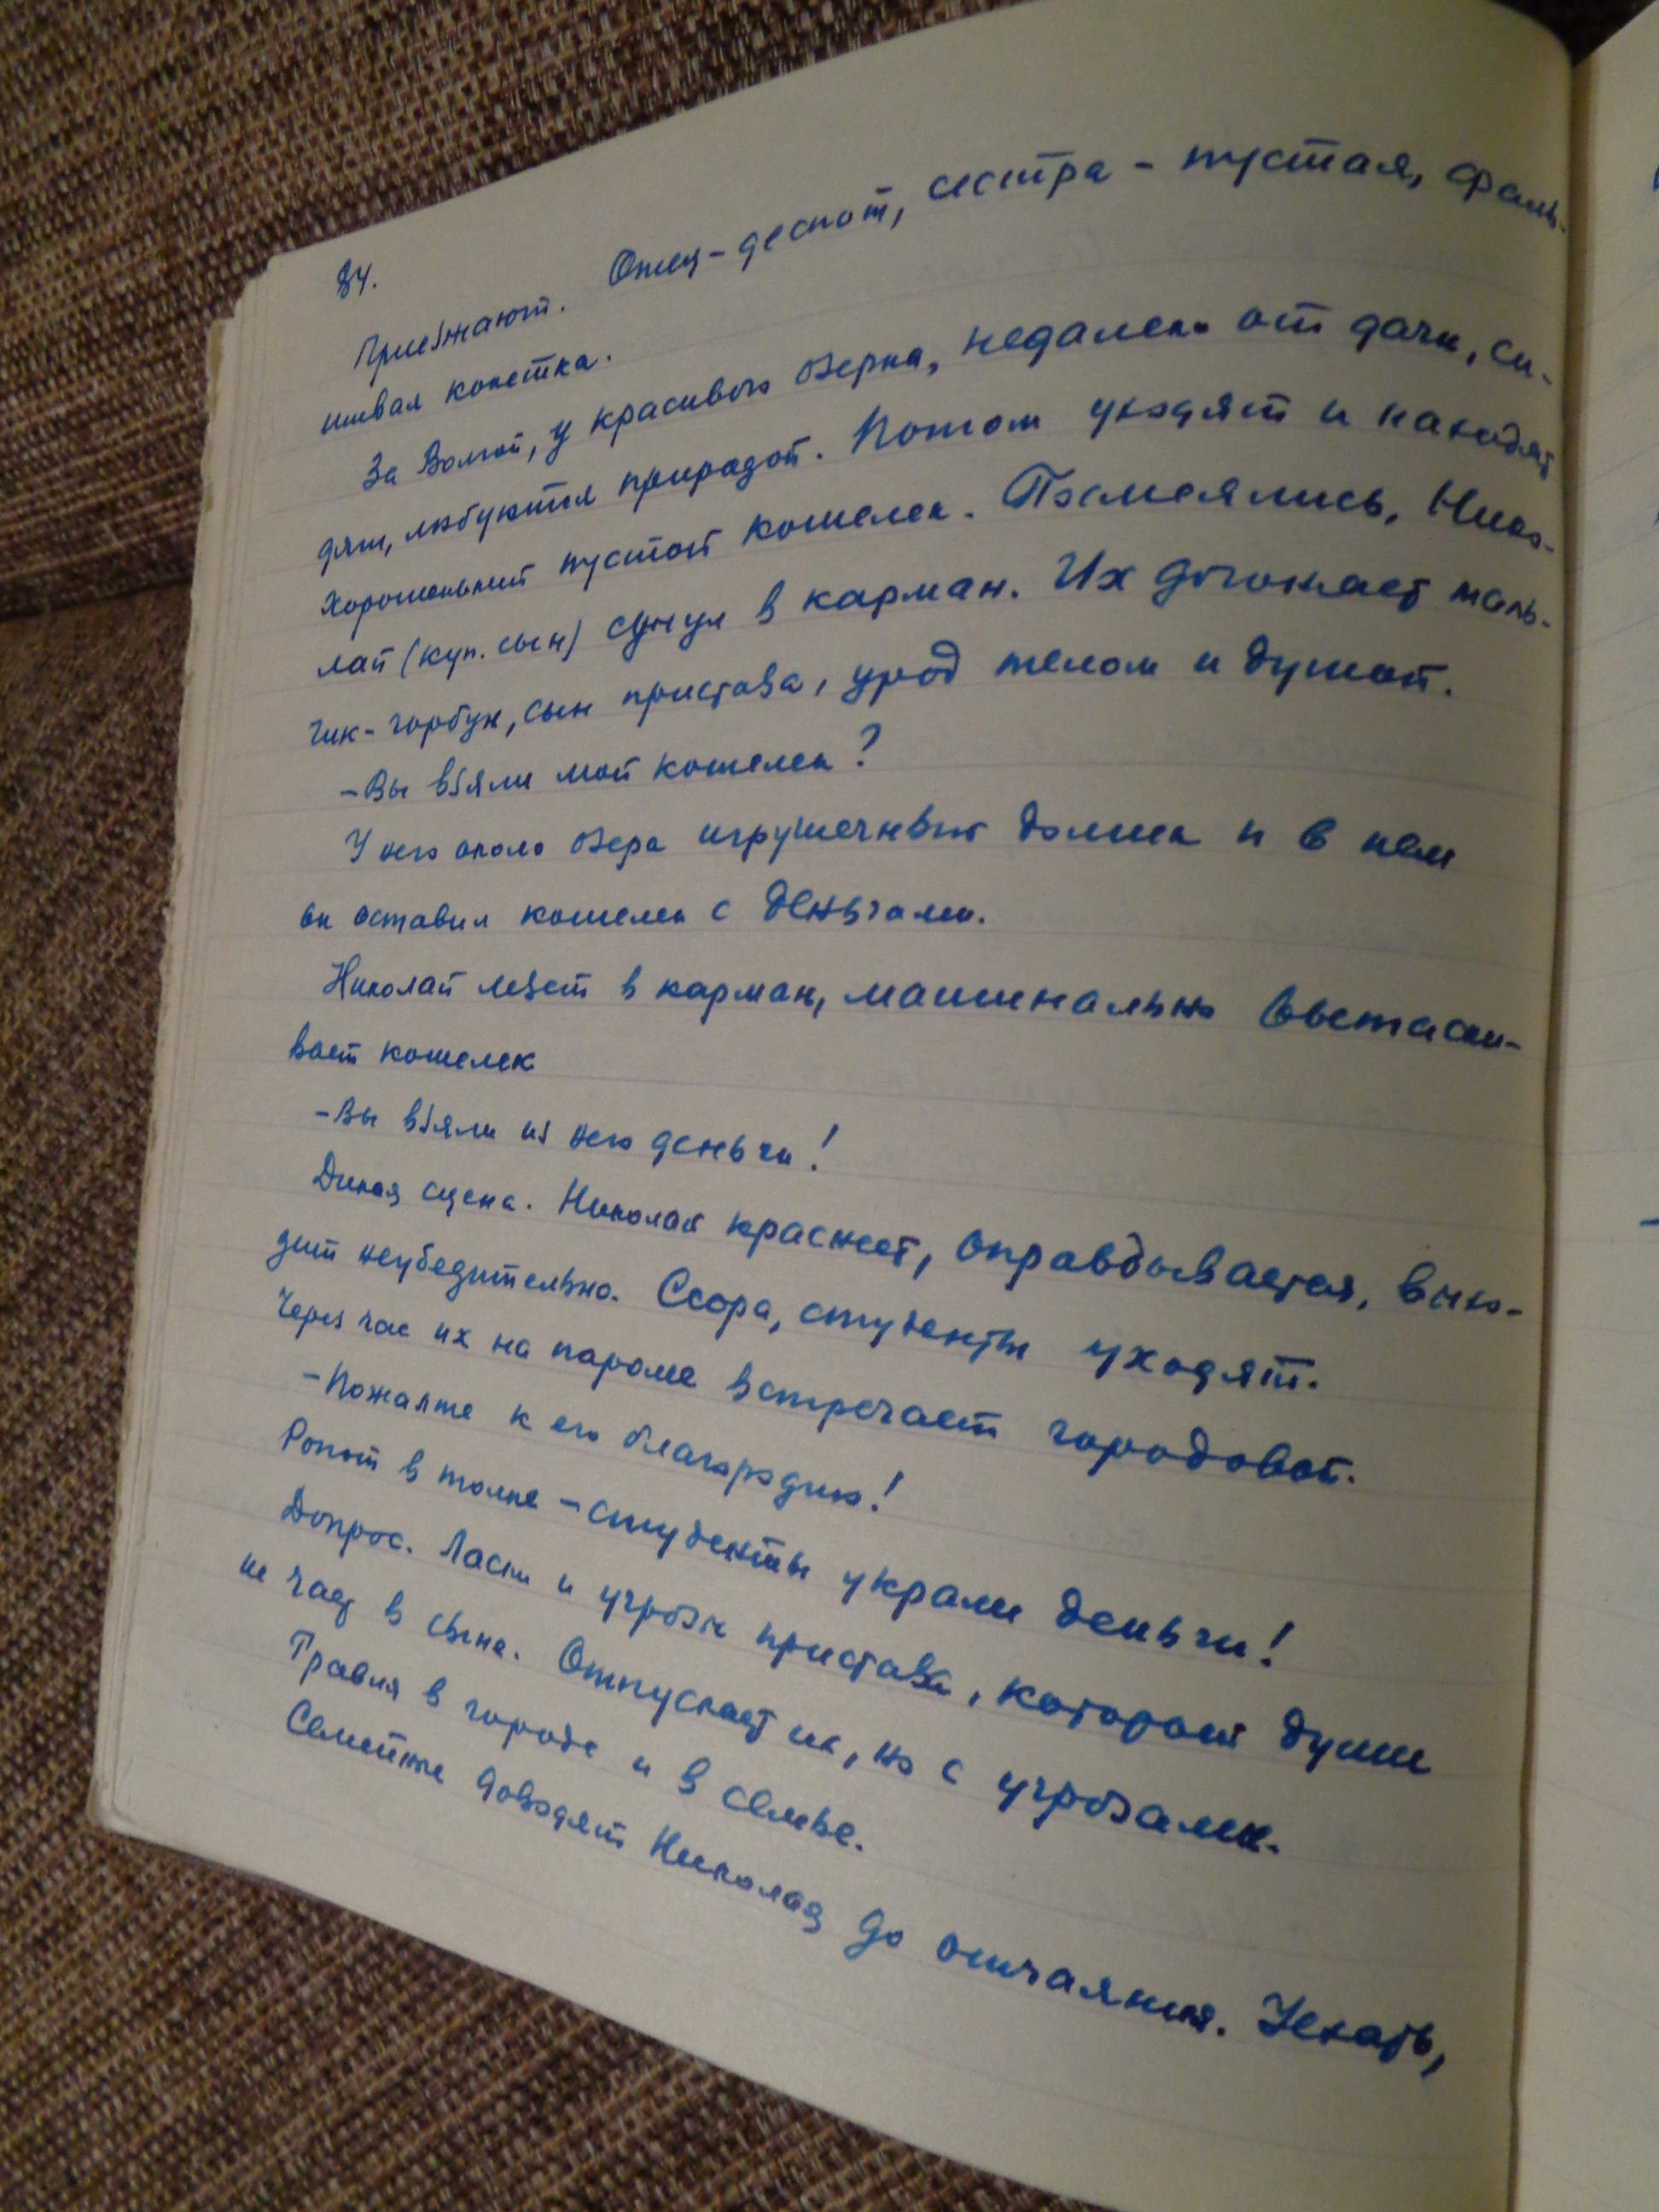 84.
Приезжают. Отец-деспот, сестра - пустая, фаль-
шивая кокетка.
За Волгой, у красивого озерка, недалеко от дачи, си-
дят, любуются природой. Потом уходят и находят
хорошенький пустой кошелек. Посмеялись, Нико-
лай (куп. сын) сунул в карман. Их догоняет маль-
чик-горбун, сын пристава, урод телом и душой.
-Вы взяли мой кошелек?
У него около озера игрушечный домик и в нем
он оставил кошелек с деньгами.
Николай лезет в карман, машинально вытаски-
вает кошелек
-Вы взяли из него деньги!
Дикая сцена. Николай краснеет, оправдывается, выхо-
дит неубедительно. Ссора, студенты уходят.
Через час их на пароме встречает городовой.
-Пожалте к его благородию!
Ропот в толпе - студенты украли деньги!
Допрос. Ласки и угрозы пристава, который души
не чает в сыне. Отпускает их, но с угрозами.
Травля в городе и в семье.
Семейные доводят Николая до отчаяния. Уехать,